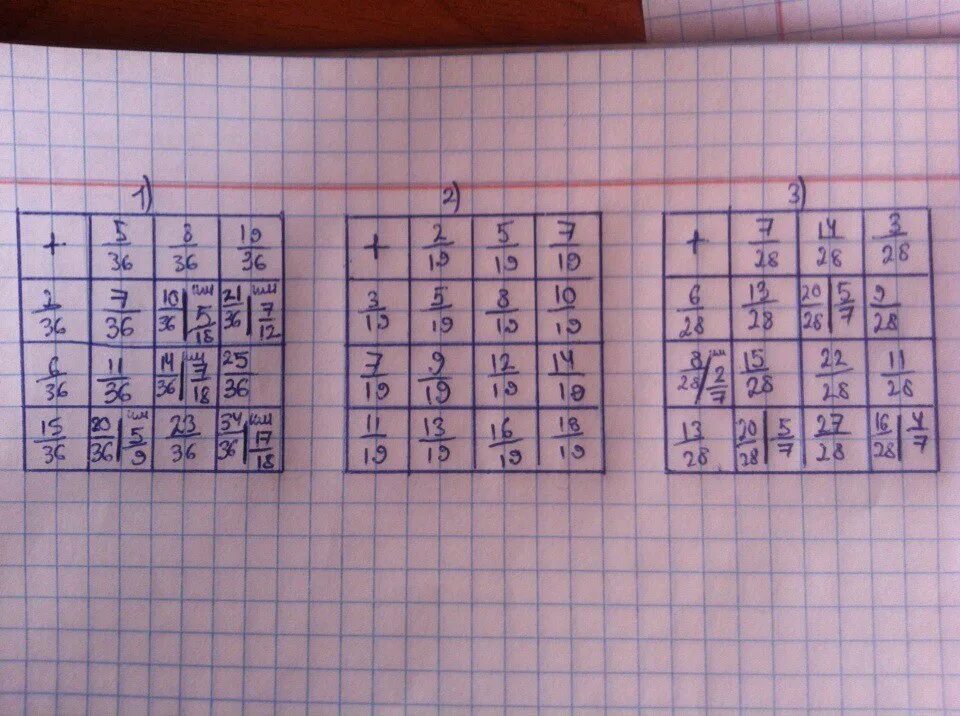 1)
+ 5/36 8/36 19/36
2/36 7/36 10/36 | или 5/18 21/36 | или 7/12
6/36 11/36 14/36 | или 7/18 25/36
15/36 20/36 | или 5/9 23/36 34/36 | или 17/18
2)
+ 2/19 5/19 7/19
3/19 5/19 8/19 10/19
7/19 9/19 12/19 14/19
11/19 13/19 16/19 18/19
3)
+ 7/28 14/28 3/28
6/28 13/28 20/28 | 5/7 9/28
8/28 / или 2/7 15/28 22/28 11/28
13/28 20/28 | 5/7 27/28 16/28 | 4/7